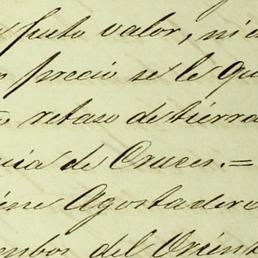 justo valor, ni
precio se le
retaso de tierra
de Cruces.=
Agostadero
del Orient